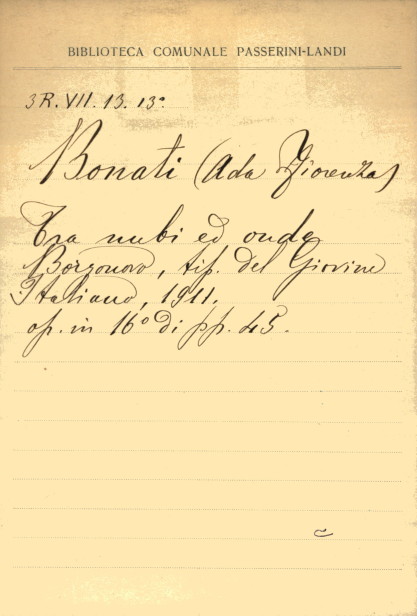 BIBLIOTECA COMUNALE PASSERINI-LANDI
3R. VII. 13. 13º
Bonati (Ada Fiorenza)
Tra nubi ed onde
Borgonovo, tip. del Giovine
Italiano, 1911.
op. in 16º di pp. 45.